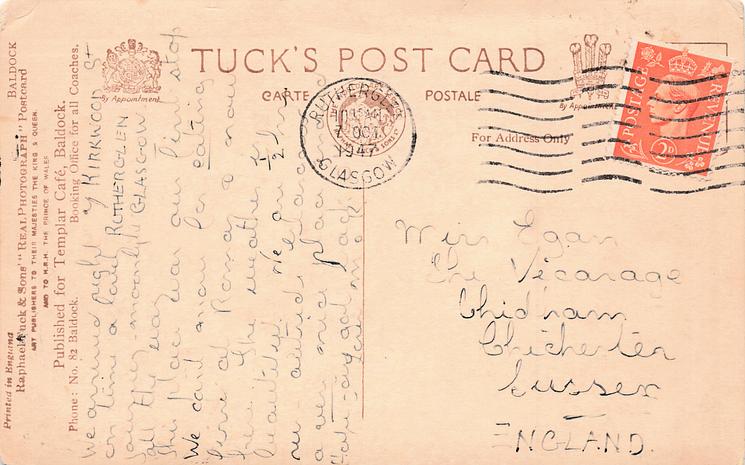 TUCK'S POST CARD
CARTE POSTALE
By Appointment
By Appointment
For Address Only
RUTHERGLEN
OCT
1947
GLASGOW
POSTAGE
REVENUE
2D
Miss Egan
The Vicarage
Chidham
Chichester
Sussex
ENGLAND.
Printed in England
Raphael Tuck & Sons' "REAL PHOTOGRAPH" Postcard BALDOCK
ART PUBLISHERS TO THEIR MAJESTIES THE KING & QUEEN
AND TO H.R.H. THE PRINCE OF WALES
Published for Templar Café, Baldock.
Phone: No. 82 Baldock. Booking Office for all Coaches.
We arrived right 9 KIRKWOOD St
on time a lovely RUTHERGLEN
journey moonlight GLASGOW
all the way
this place was our first stop
We cant now for eating
here at Roma a nour
here the weather
beautiful. 1/2
a nice place